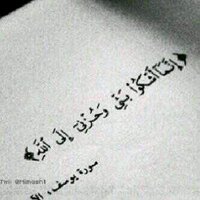 ﴿إِنَّمَا أَشْكُوا۟ بَثِّي وَحُزْنِي إِلَى اللَّهِ﴾
سورة يوسف،